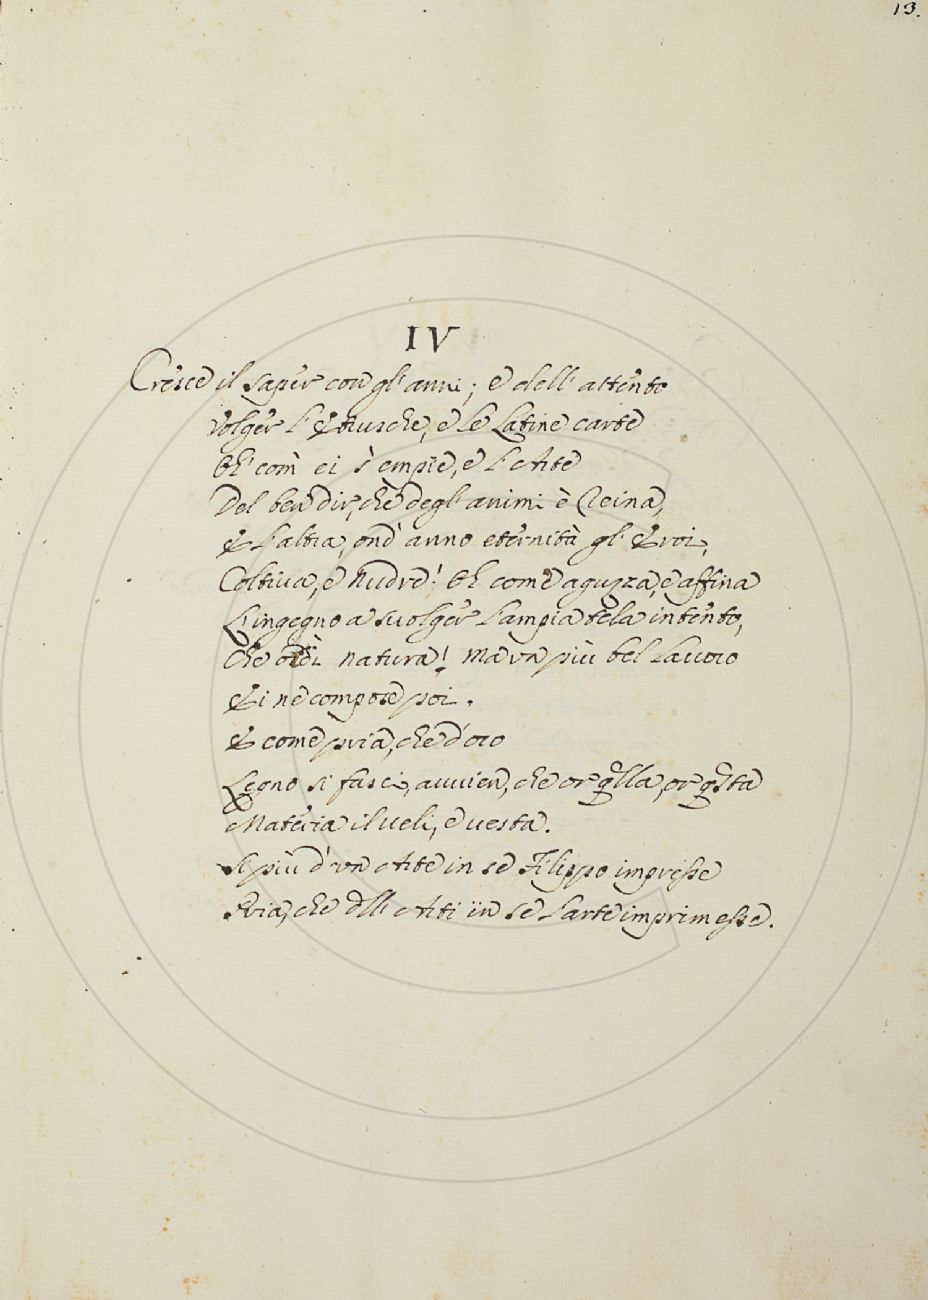 13.
IV
Cresce il saper con gl' anni; e dell' attento
volger l' Etrusche, e le Latine carte
Oh' com' ei s' empie, e l' Arte
Del ben dir, che degl' animi è Reina,
E l'altra, ond' anno eternità gl' Eroi,
Coltiva, e nudre! Oh come aguzza, e affina
L'ingegno a svolger l'ampia tela intento,
Che ordì natura! Ma un più bel lavoro
Ei ne compose poi.
E come pria, che d'oro
Legno si fasci, avvien, che or qlla, or qsta
Materia il veli, e vesta.
Si più d' un Arte in se Filippo impresse
Pria, che dll' Arti in se l'arte imprimesse.